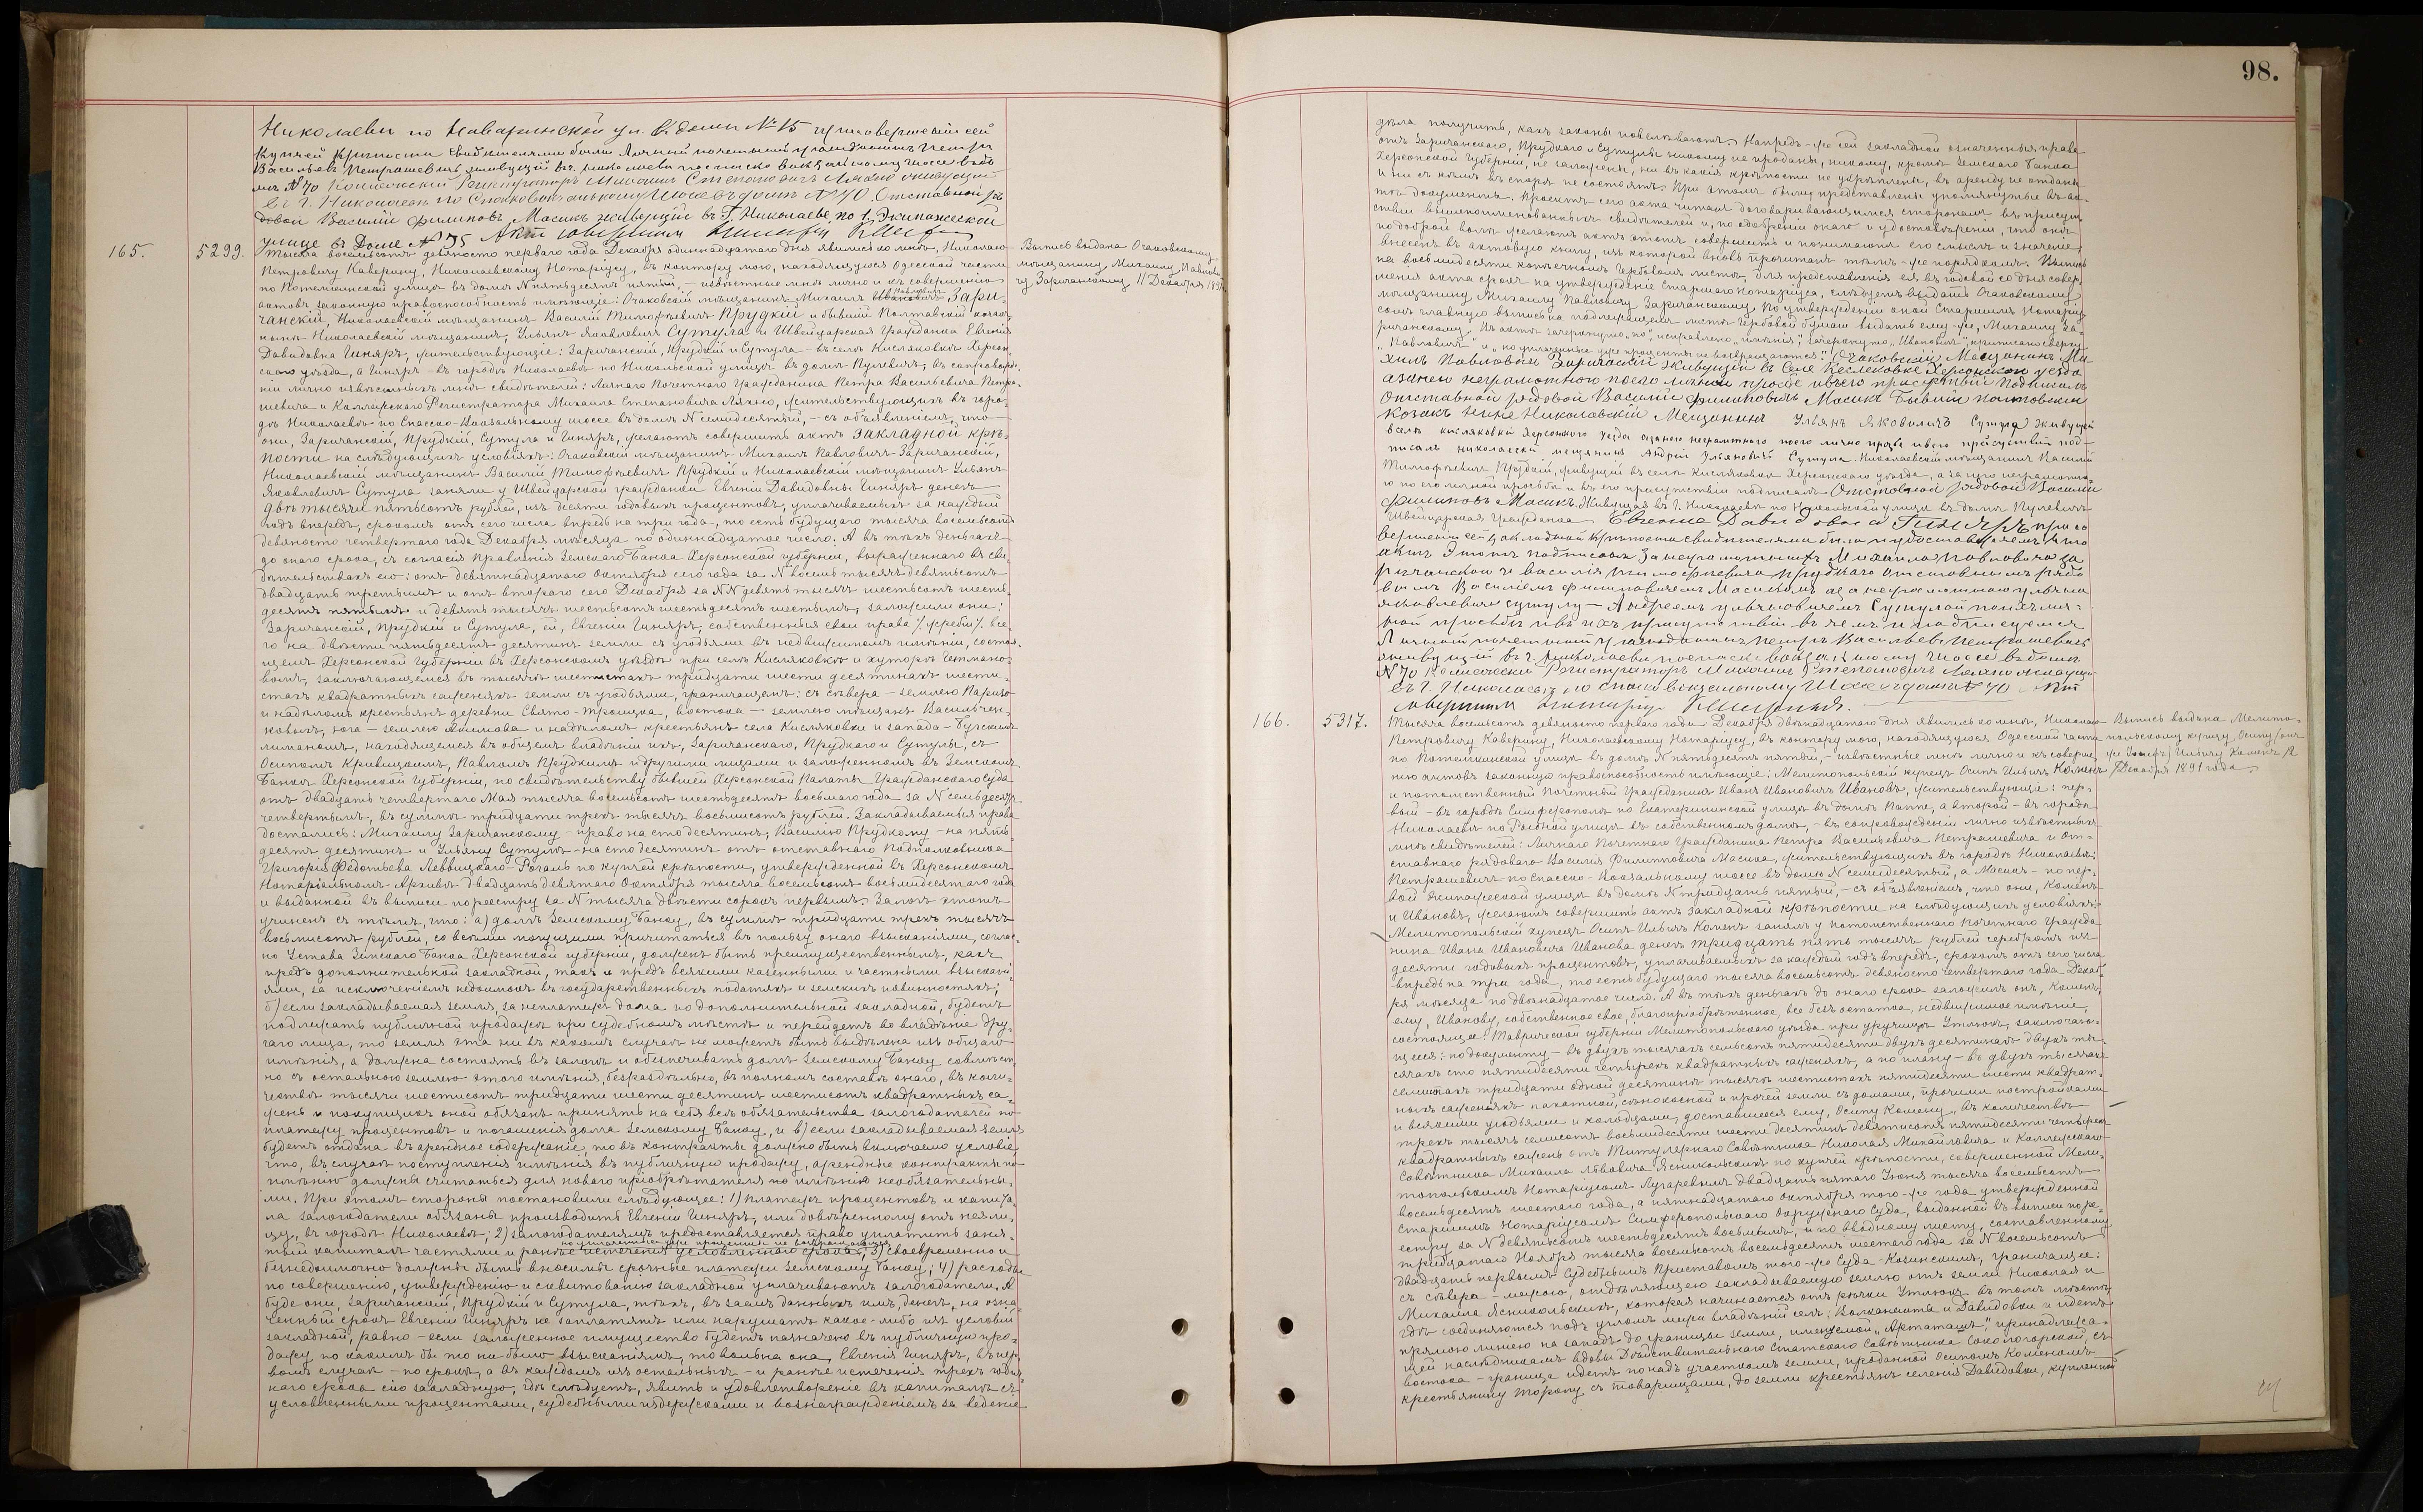 98.
Николаевѣ по Наваринской ул. в. домѣ № 15 при совершеніи сей
купчей крѣпости свидѣтелями были Личный почетный гражданинъ Петръ
Васильевъ Петрашевичъ живущій въ Николаевѣ по Спаско вокзальному шоссе въ до
мѣ № 70 Колежскій Регистраторъ Михаилъ Степановичъ Ляхно живущій
въ г. Николаевѣ по Спасковокзальному Шоссе въ домѣ № 70. Отставной ря
довой Василій Филиповъ Масикъ живущій въ Г. Николаеве по 1, Экипажеской
улице в Доме № 35 Актъ совершилъ Нотаріусъ
165.
5299.
Тысяча восемьсотъ девяносто перваго года Декабря одиннадцатаго дня явились ко мнѣ, Николаю
Петровичу Каверину, Николаевскому Нотаріусу, въ контору мою, находящуюся Одесской части
по Потемкинской улицѣ въ домѣ N пятьдесятъ пятый, – извѣстные мнѣ лично и къ совершенію
актовъ законную правоспособность имѣющіе: Очаковскій мѣщанинъ Михаилъ Ивановичъ Павловичъ Зари-
чанскій, Николаевскій мѣщанинъ Василій Тимофѣевичъ Прудкій и бывшій Полтавскій козакъ,
нынѣ Николаевскій мѣщанинъ, Ульянъ Яковлевичъ Сутула и Швейцарская Гражданка Евгенія
Давидовна Гиняръ, жительствующіе: Заричанскій, Прудкій и Сутула – въ селѣ Кисляковкѣ Херсон-
скаго уѣзда, а Гиняръ – въ городѣ Николаевѣ по Никольской улицѣ въ домѣ Пулевичъ, въ сопровожде-
ніи лично извѣстныхъ мнѣ свидѣтелей: Личнаго Почетнаго Гражданина Петра Васильевича Петра-
шевича и Коллежскаго Регистратора Михаила Степановича Ляхно, жительствующихъ въ горо-
дѣ Николаевѣ по Спасско-Вокзальному шоссе въ домѣ N семидесятый, – съ объявленіемъ, что
они, Заричанскій, Прудкій, Сутула и Гиняръ, желаютъ совершить актъ закладной крѣ-
пости на слѣдующихъ условіяхъ: Очаковскій мѣщанинъ Михаилъ Павловичъ Заричанскій,
Николаевскій мѣщанинъ Василій Тимофѣевичъ Прудкій и Николаевскій мѣщанинъ Ульянъ
Яковлевичъ Сутула заняли у Швейцарской гражданки Евгеніи Давидовны Гиняръ денегъ
двѣ тысячи пятьсотъ рублей, изъ десяти годовыхъ процентовъ, уплачиваемыхъ за каждый
годъ впередъ, срокомъ отъ сего числа впредь на три года, то есть будущаго тысяча восемьсотъ
девяносто четвертаго года Декабря мѣсяца по одиннадцатое число. А въ тѣхъ деньгахъ
до онаго срока, съ согласія Правленія Земскаго Банка Херсонской губерніи, выраженнаго въ сви-
дѣтельствахъ его: отъ девятнадцатаго Октября сего года за N восемь тысячъ девятьсотъ
двадцать третьимъ и отъ втораго сего Декабря за NN девять тысячъ шестьсотъ шесть-
десятъ пятымъ и девять тысячъ шестьсотъ шестьдесятъ шестымъ, заложили они:
Заричанскій, Прудкій и Сутула, ей, Евгеніи Гиняръ, собственныя свои права /жребій/, все-
го на двѣсти пятьдесятъ десятинъ земли съ угодьями въ недвижимомъ имѣніи, состоя-
щемъ Херсонской Губерніи въ Херсонскомъ уѣздѣ при селѣ Кисляковкѣ и хуторѣ Гетмано-
вомъ, заключающемся въ тысячѣ шестистахъ тридцати шести десятинахъ шести-
стахъ квадратныхъ саженяхъ земли съ угодьями, граничащемъ: съ сѣвера – землею Паризо
и надѣломъ крестьянъ деревни Свято-Троицка, востока – землею мѣщанъ Васильчен-
ковыхъ, юга – землею Акимова и надѣломъ крестьянъ села Кисляковки и запада – Бугскимъ
лиманомъ, находящемся въ общемъ владѣніи ихъ, Заричанскаго, Прудкаго и Сутулы, съ
Осипомъ Кривицкимъ, Павломъ Прудкимъ и другими лицами и заложенномъ въ Земскомъ
Банкѣ Херсонской Губерніи, по свидѣтельству бывшей Херсонской Палаты Гражданскаго Суда
отъ двадцать четвертаго Мая тысяча восемьсотъ шестьдесятъ восьмаго года за N семьдесятъ
четвертымъ, въ суммѣ тридцати трехъ тысячъ восьмисотъ рублей. Закладываемыя права
достались: Михаилу Заричанскому – право на сто десятинъ, Василію Прудкому – на пять-
десятъ десятинъ и Ульяну Сутулѣ – на сто десятинъ отъ отставнаго Подполковника
Григорія Федотьева Леввицкаго-Рогаль по купчей крѣпости, утвержденной въ Херсонскомъ
Нотаріальномъ Архивѣ двадцать девятаго Октября тысяча восемьсотъ восьмидесятаго года
и выданной въ выписи по реестру за N тысяча двѣсти сорокъ первымъ. Залогъ этотъ
учиненъ съ тѣмъ, что: а) долгъ Земскому Банку, въ суммѣ тридцати трехъ тысячъ
восьмисотъ рублей, со всѣми могущими причитаться въ пользу онаго взысканіями, соглас-
но Устава Земскаго Банка Херсонской губерніи, долженъ быть преимущественнымъ, какъ
предъ дополнительной закладной, такъ и предъ всякими казенными и частными взыскані-
ями, за исключеніемъ недоимокъ въ государственныхъ податяхъ и земскихъ повинностяхъ;
б) если закладываемая земля, за неплатежъ долга по дополнительной закладной, будетъ
подлежать публичной продажѣ при судебномъ мѣстѣ и перейдетъ во владѣніе дру-
гаго лица, то земля эта ни въ какомъ случаѣ не можетъ быть выдѣлена изъ общаго
имѣнія, а должна состоять въ залогѣ и обезпечивать долгъ Земскому Банку, совмѣст-
но съ остальною землею этого имѣнія, безраздѣльно, въ полномъ составѣ онаго, въ коли-
чествѣ тысячи шестисотъ тридцати шести десятинъ шестисотъ квадратныхъ са-
женъ и покупщикъ оной обязанъ принять на себя всѣ обязательства залогодателей по
платежу процентовъ и погашенія долга Земскому Банку, и в) если закладываемая земля
будетъ отдана въ арендное содержаніе, то въ контрактѣ должно быть включено условіе,
что, въ случаѣ поступленія имѣнія въ публичную продажу, арендные контракты по
имѣнію должны считаться для новаго пріобрѣтателя по имѣнію необязательны-
ми. При этомъ стороны постановили слѣдующее: 1) платежъ процентовъ и капита-
ла залогодатели обязаны производить Евгеніи Гиняръ, или довѣренному отъ нея ли-
цу, въ городѣ Николаевѣ; 2) залогодателямъ предоставляется право уплатить заня-
тый капиталъ частями и ранѣе истеченія условленнаго срока, но уплаченные уже проценты не возвращаются; 3) своевременно и
безнедоимочно должны быть вносимы срочные платежи Земскому Банку; 4) расходы
по совершенію, утвержденію и сквитованію закладной уплачиваютъ залогодатели. А
буде они, Заричанскій, Прудкій и Сутула, тѣхъ, въ заемъ данныхъ имъ, денегъ, на озна-
ченный срокъ Евгеніи Гиняръ не заплатятъ или нарушатъ какое-либо изъ условій
закладной, равно – если заложенное имущество будетъ назначено въ публичную про-
дажу по какимъ бы то ни было взысканіямъ, то вольна она, Евгенія Гиняръ, въ пер-
вомъ случаѣ – по срокѣ, а въ каждомъ изъ остальныхъ – и ранѣе истеченія трехъ годич-
наго срока сію закладную, гдѣ слѣдуетъ, явить и удовлетвореніе въ капиталѣ съ
условленными процентами, судебными издержками и вознагражденіемъ за веденіе
Выпись выдана Очаковскому
мѣщанину Михаилу Павлови-
чу Заричанскому 11 Декабря 1891
дѣла получить, какъ законы повелѣваютъ. Напредь-же сей закладной означенныя права
отъ Заричанскаго, Прудкаго и Сутулы никому не проданы, никому, кромѣ Земскаго Банка
Херсонской Губерніи, не заложены, ни въ какія крѣпости не укрѣплены, въ аренду не отданы
и ни съ кѣмъ въ спорѣ не состоятъ. При этомъ были представлены упомянутые въ ак-
тѣ документы. Проектъ сего акта читанъ договаривающимся сторонамъ въ присут-
ствіи вышепоименованныхъ свидѣтелей и, по одобреніи онаго и удостовѣреніи, что они
по доброй волѣ желаютъ актъ этотъ совершить и понимаютъ его смыслъ и значеніе,
внесенъ въ актовую книгу, изъ которой вновь прочитанъ тѣмъ-же порядкомъ. Выпись
на восьмидесяти копѣечномъ гербовомъ листѣ, для представленія ея въ годовой со дня совер-
шенія акта срокъ на утвержденіе Старшаго Нотаріуса, слѣдуетъ выдать Очаковскому
мѣщанину Михаилу Павловичу Заричанскому. По утвержденіи оной Старшимъ Нотаріу-
сомъ главную выпись на подлежащемъ листѣ гербовой бумаги выдать ему-же, Михаилу За-
ричанскому. Въ актѣ зачеркнуто „по“, исправлено „имѣнія“, зачеркнуто „Ивановичъ“, приписано сверху:
„Павловичъ“ и „но уплаченные уже проценты не возвращаются“. Очаковскій Мещанинъ Ми
хилъ Павловичъ Заричаскій живущій въ Селе Кеслековке Херсонскои уезда
азанево неграмотного поего личной прозбе ивъево присуствіи подписалъ
Отставной рядовой Василий Филиповичъ Масикъ бывшій полтовскии
козакъ нине Николаевскій Мещанинъ Ульянъ Яковличъ Сутула живущій
въ селѣ кисляковки Херсонкого уезда азанего неграмотного поего лично прозбе ивего присуствій под-
писалъ николаевскй мещянинъ Андрей Ульяновичъ Сутула. Николаевскій мѣщанинъ Василій
Тимофѣевичъ Прудкій, живущій въ селѣ Кисляковкѣ Херсонскаго уѣзда, а за него неграмотна-
го по его личной просьбѣ и въ его присутствіи подписалъ Отставной рядовой Василий
Филиповъ Масикъ. Живущая въ г. Николаевѣ по Никольской улицѣ въ домѣ Пулевичъ
Швейцарская Гражданка Евгения Давидовна Гиняръ при со
вершеніи сей закладной крѣпости свидѣтелями были и удостовѣряемъ что
актъ этотъ подписалъ за неграмотныхъ Михаила Павловича За
ричанскаго и Василія Тимофѣевича Прудкаго отставнымъ рядо
вымъ Василіемъ Филиповичемъ Масикомъ а за неграмотного Ульяна
Яковлевича Сутулу – Андреемъ Ульяновичемъ Сутулой по их лич-
ной просьбѣ и въ ихъ присутствіи въ чемъ и подписуемся
Личный почетный гражданинъ Петръ Васильевъ Петрашевичъ
живущій въ г. Николаеви по спаско вокзальному шоссе в домѣ
N 70 Колежскій Регистраторъ Михаилъ Степановичъ Ляхно живущій
въ г. Николаевѣ по спасковокзальному Шоссе въ домѣ № 70. Актъ
совершилъ Нотаріусъ
166.
5317.
Тысяча восемьсотъ девяносто перваго года Декабря двѣнадцатаго дня явились ко мнѣ, Николаю
Петровичу Каверину, Николаевскому Нотаріусу, въ контору мою, находящуюся Одесской части
по Потемкинской улицѣ въ домѣ N пятьдесятъ пятый, – извѣстные мнѣ лично и къ соверше-
нію актовъ законную правоспособность имѣющіе: Мелитопольскій купецъ Осипъ Ильичъ Коменъ
и потомственный Почетный Гражданинъ Иванъ Ивановичъ Ивановъ, жительствующіе: пер-
вый – въ городѣ Симферополѣ по Екатерининской улицѣ въ домѣ Паппе, а второй – въ городѣ
Николаевѣ по Рыбной улицѣ въ собственномъ домѣ, – въ сопровожденіи лично извѣстныхъ
мнѣ свидѣтелей: Личнаго Почетнаго Гражданина Петра Васильевича Петрашевича и от-
ставнаго рядоваго Василія Филипповича Масика, жительствующихъ въ городѣ Николаевѣ:
Петрашевичъ по Спасско-Вокзальному шоссе въ домѣ N семидесятый, а Масикъ – по пер-
вой Экипажеской улицѣ въ домѣ N тридцать пятый, – съ объявленіемъ, что они, Коменъ
и Ивановъ, желаютъ совершить актъ закладной крѣпости на слѣдующихъ условіяхъ:
Мелитопольскій купецъ Осипъ Ильичъ Коменъ занялъ у потомственнаго Почетнаго Гражда-
нина Ивана Ивановича Иванова денегъ тридцать пять тысячъ рублей серебромъ изъ
десяти годовыхъ процентовъ, уплачиваемыхъ за каждый годъ впередъ, срокомъ отъ сего числа
впредь на три года, то есть будущаго тысяча восемьсотъ девяносто четвертаго года Декаб-
ря мѣсяца по двѣнадцатое число. А въ тѣхъ деньгахъ до онаго срока заложилъ онъ, Коменъ,
ему, Иванову, собственное свое, благопріобрѣтенное, все безъ остатка, недвижимое имѣніе,
состоящее: Таврической губерніи Мелитопольскаго уѣзда при урочищѣ Утлюкъ, заключаю-
щееся: по документу – въ двухъ тысячахъ семьсотъ пятидесяти двухъ десятинахъ двухъ ты-
сячахъ сто пятидесяти четырехъ квадратныхъ саженяхъ, а по плану – въ двухъ тысячахъ
семистахъ тридцати одной десятинѣ тысячѣ шестистахъ пятидесяти шести квадрат-
ныхъ саженяхъ пахатной, сѣнокосной и прочей земли съ домами, прочими постройками
и всякими угодьями и колодцами, доставшееся ему, Осипу Комену, въ количествѣ
трехъ тысячъ семисотъ восьмидесяти шести десятинъ девятисотъ пятидесяти четырехъ
квадратныхъ саженъ отъ Титулярнаго Совѣтника Николая Михайловича и Коллежскаго
Совѣтника Михаила Львовича Яснипольскихъ по купчей крѣпости, совершенной Мели-
топольскимъ Нотаріусомъ Лугаревымъ двадцать пятаго Іюня тысяча восемьсотъ
восемьдесятъ шестаго года, а пятнадцатаго Октября того-же года утвержденной
Старшимъ Нотаріусомъ Симферопольскаго Окружнаго Суда, выданной въ выписи по ре-
естру за N девятьсотъ шестьдесятъ восьмымъ, и по вводному листу, составленному
тридцатаго Ноября тысяча восемьсотъ восемьдесятъ шестаго года за N восемьсотъ
двадцать первымъ Судебнымъ Приставомъ того-же Суда Козинскимъ, граничащее:
съ сѣвера – межою, отдѣляющею закладываемую землю отъ земли Николая и
Михаила Яснипольскихъ, которая начинается отъ рѣчки Утлюкъ въ томъ мѣстѣ,
гдѣ соединяются подъ угломъ межи владѣній селъ: Волканешти и Давидовки и идетъ
прямою линіею на западъ до границы земли, именуемой „Арташъ“, принадлежа-
щей наслѣдникамъ вдовы Дѣйствительнаго Статскаго Совѣтника Сокологорской, съ
востока – граница идетъ по надъ участкомъ земли, проданной Осипомъ Коменомъ
крестьянину Морозу съ товарищами, до земли крестьянъ селенія Давидовки, купленной
Выпись выдана Мелито-
польскому купцу Осипу /онъ
же Іосифъ/ Ильичу Коменъ 12
Декабря 1891 года